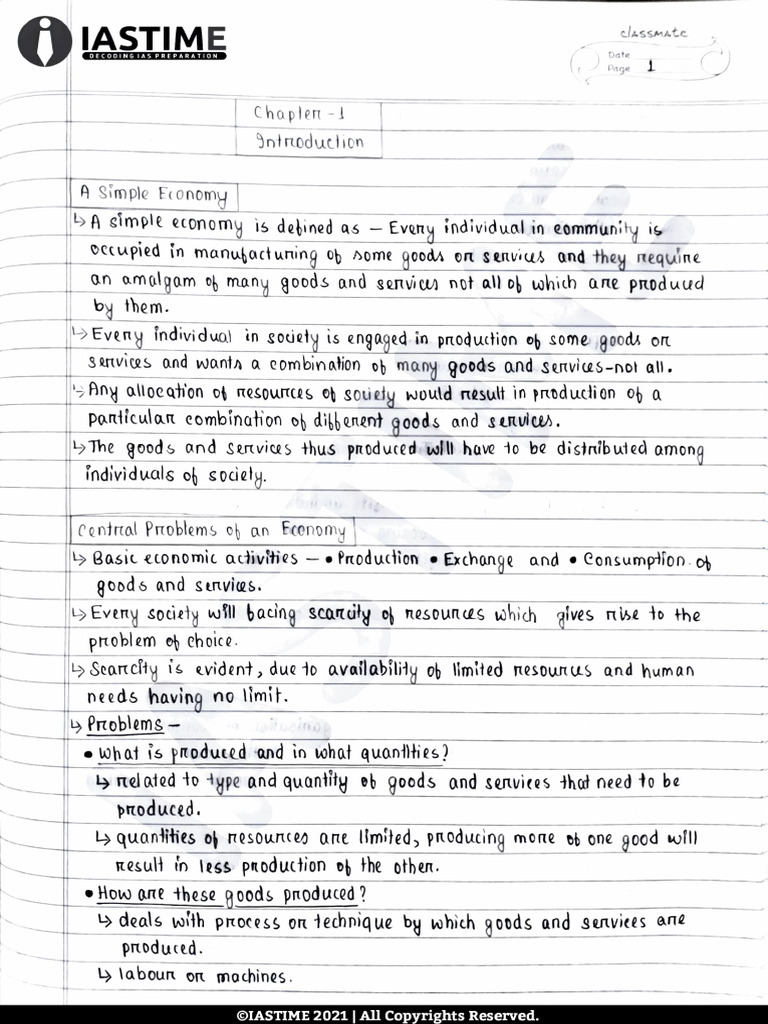 IASTIME
DECODING IAS PREPARATION
classmate
Date
Page 1
Chapter -1
Introduction
A Simple Economy
↳ A simple economy is defined as – Every individual in community is
occupied in manufacturing of some goods or services and they require
an amalgam of many goods and services not all of which are produced
by them.
↳ Every individual in society is engaged in production of some goods or
services and wants a combination of many goods and services-not all.
↳ Any allocation of resources of society would result in production of a
particular combination of different goods and services.
↳ The goods and services thus produced will have to be distributed among
individuals of society.
Central Problems of an Economy
↳ Basic economic activities – • Production • Exchange and • Consumption of
goods and services.
↳ Every society will facing scarcity of resources which gives rise to the
problem of choice.
↳ Scarcity is evident, due to availability of limited resources and human
needs having no limit.
↳ Problems –
• What is produced and in what quantities?
↳ related to type and quantity of goods and services that need to be
produced.
↳ quantities of resources are limited, producing more of one good will
result in less production of the other.
• How are these goods produced?
↳ deals with process or technique by which goods and services are
produced.
↳ labour or machines.
©IASTIME 2021 | All Copyrights Reserved.